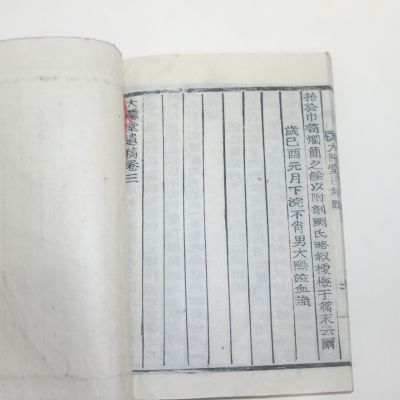 拾於巾笥爛簡之餘以附剞劂氏略叙梗概于篇末云爾
歲己酉元月下浣不肖男大熙泣血識
大隱堂遺稿卷三